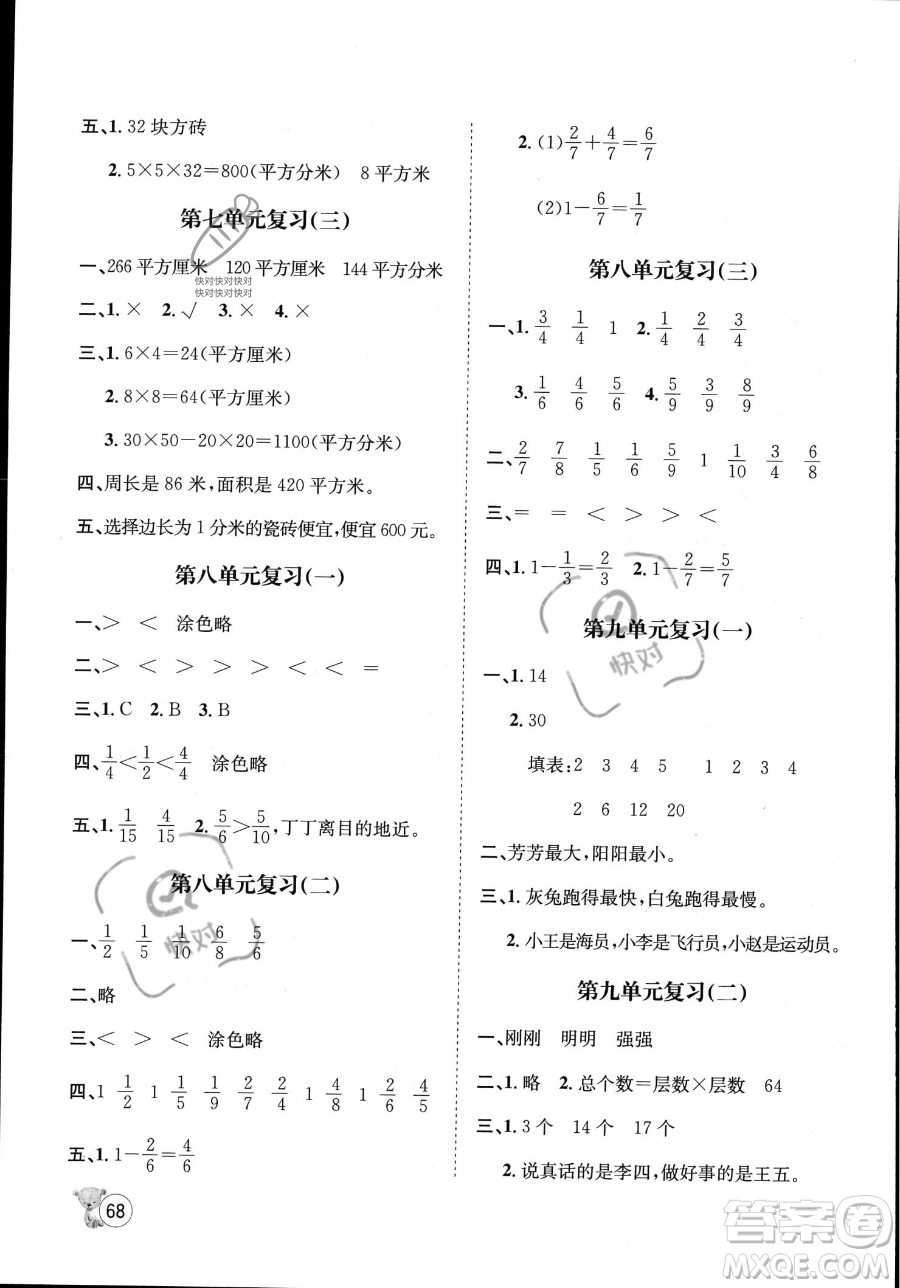 五、1. 32 块方砖
2. 5×5×32=800(平方分米) 8 平方米
第七单元复习(三)
一、266 平方厘米 120 平方厘米 144 平方厘米
快对快对快对
快对快对快对
二、1. × 2. √ 3. × 4. ×
三、1. 6×4=24(平方厘米)
2. 8×8=64(平方厘米)
3. 30×50-20×20=1100(平方分米)
四、周长是 86 米,面积是 420 平方米。
五、选择边长为 1 分米的瓷砖便宜,便宜 600 元。
第八单元复习(一)
一、> < 涂色略
二、> < > > > < < =
三、1. C 2. B 3. B
四、1/4<1/2<4/4 涂色略
五、1. 1/15 4/15 2. 5/6>5/10,丁丁离目的地近。
第八单元复习(二)
一、1/2 1/5 1/10 6/8 5/6
二、略
三、< > < 涂色略
四、1 1/2 1 1/5 1/9 2/8 1 4/8 1 1/6
五、1. 1-2/6=4/6
68
2. (1)2/7+4/7=6/7
(2)1-6/7=1/7
第八单元复习(三)
一、1. 3/4 1/4 1 2. 1/4 2/4 3/4
3. 1/6 4/6 5/6 4. 5/9 3/9 8/9
二、2/7 7/8 1/5 5/9 1 1/10 3/4 6/8
三、= = < > > <
四、1. 1-1/3=2/3 2. 1-2/7=5/7
第九单元复习(一)
一、1. 14
2. 30
填表:2 3 4 5 1 2 3 4
2 6 12 20
二、芳芳最大,阳阳最小。
三、1. 灰兔跑得最快,白兔跑得最慢。
2. 小王是海员,小李是飞行员,小赵是运动员。
第九单元复习(二)
一、刚刚 明明 强强
二、1. 略 2. 总个数=层数×层数 64
三、1. 3 个 14 个 17 个
2. 说真话的是李四,做好事的是王五。
快对
快对
答案圈
MXQE.COM